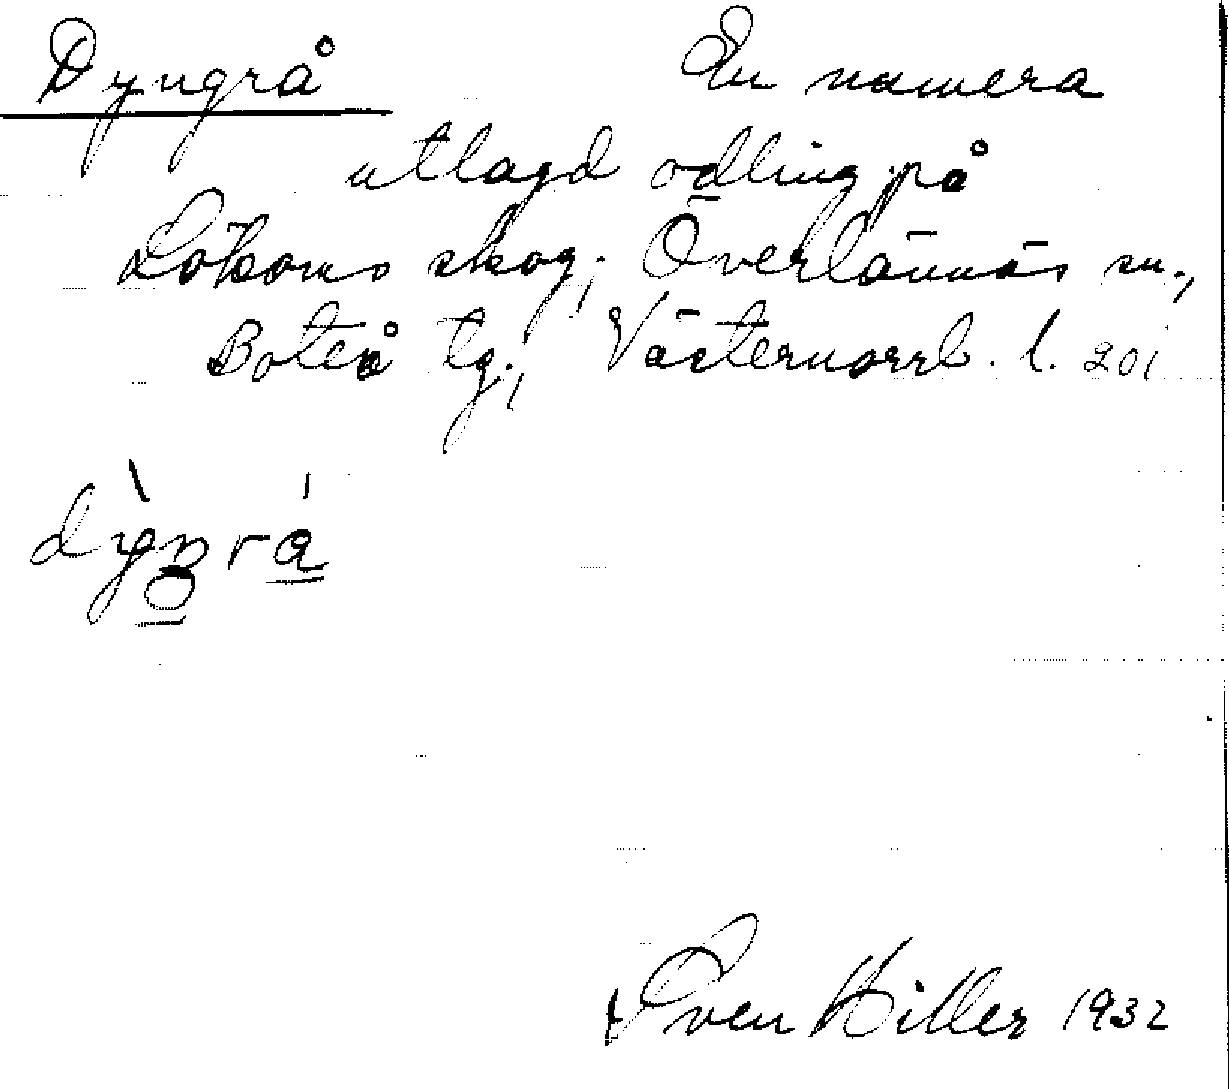 Dyngrå En numera
utlagd odling på
Lökoms skog, Överlännäs sn.,
Boteå tg., Västernorrl. l. 201
Sven Hiller 1932